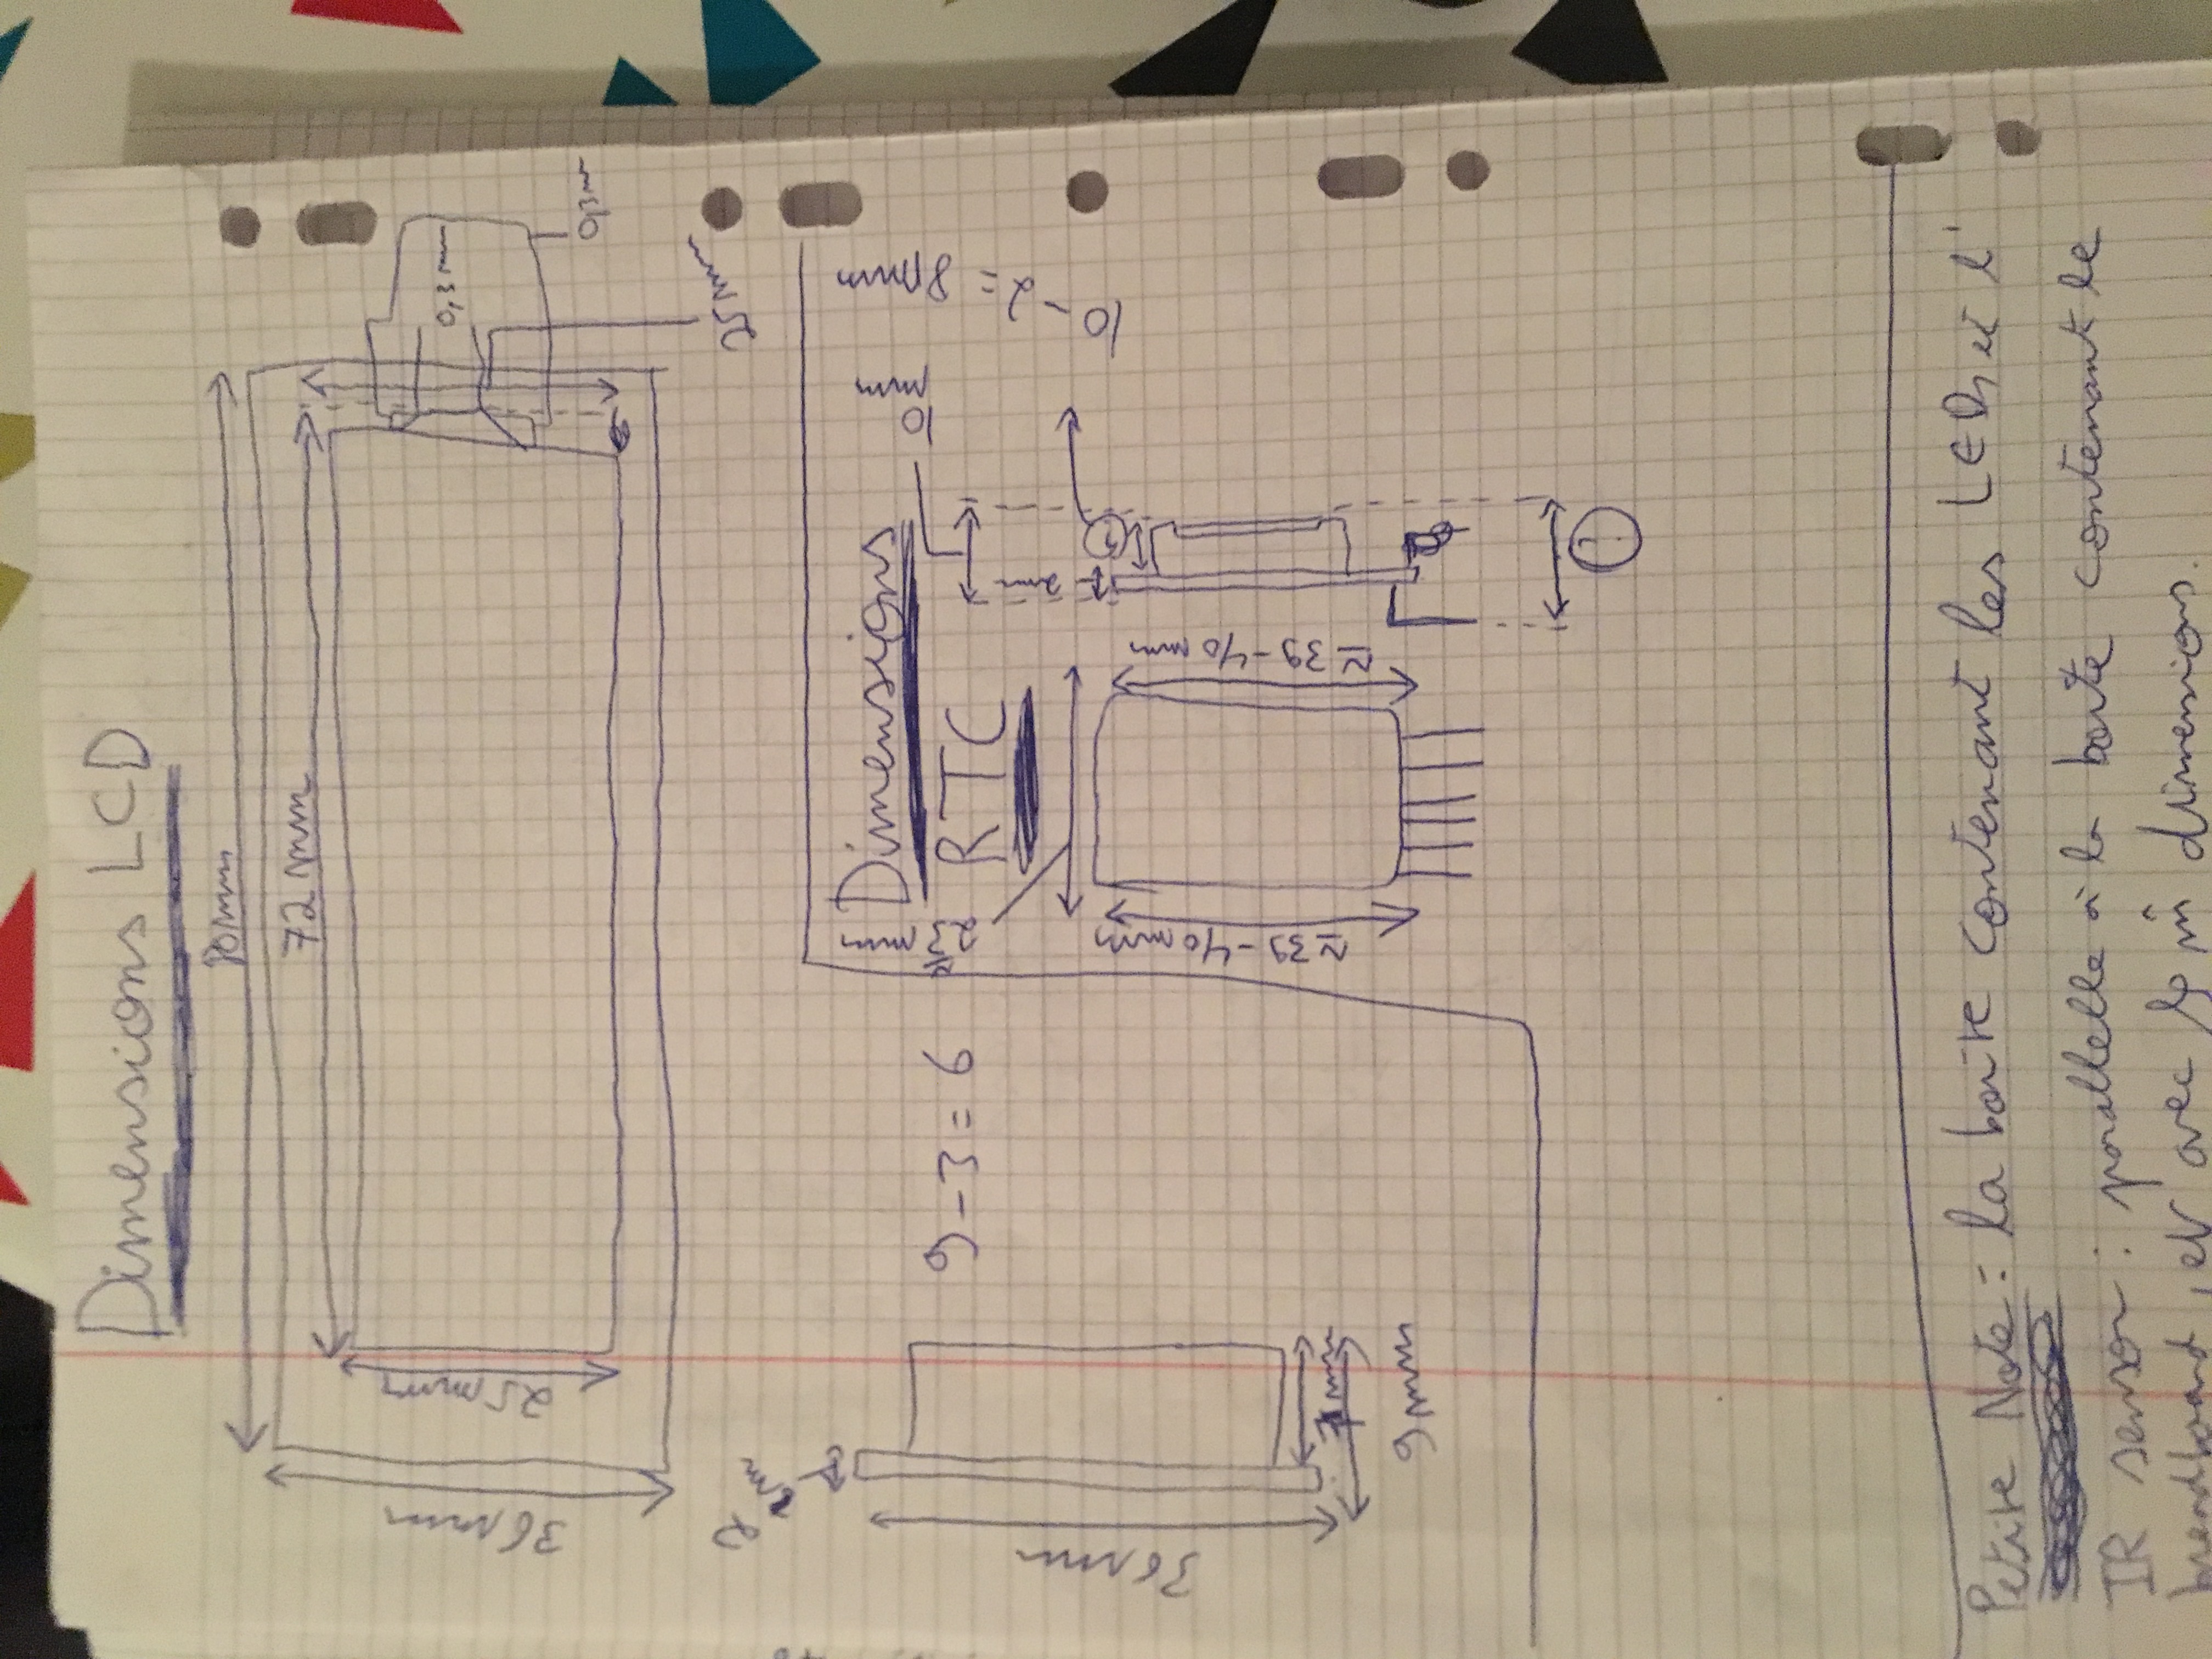 Dimensions LCD
80mm
72 mm
36mm
25mm
0,3 mm
0,3mm
25mm
2
36mm
9-3=6
7mm
9mm
Dimensions
RTC
≃ 23 mm
10 mm
2mm
10-2=8mm
≃39-40mm
≃39-40mm
?
Petite Note : la boîte contenant les LEDs et l'
IR sensor : parallelle à la boîte contenant le
breadboard, et avec les m̂ dimensions.